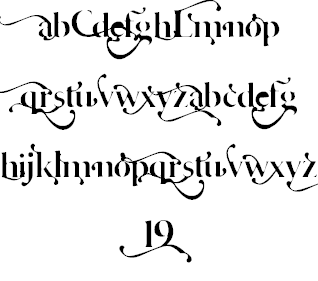 abCdefghLmnop
qrstuvwxyzabcdefg
hijklmnopqrstuvwxyz
19